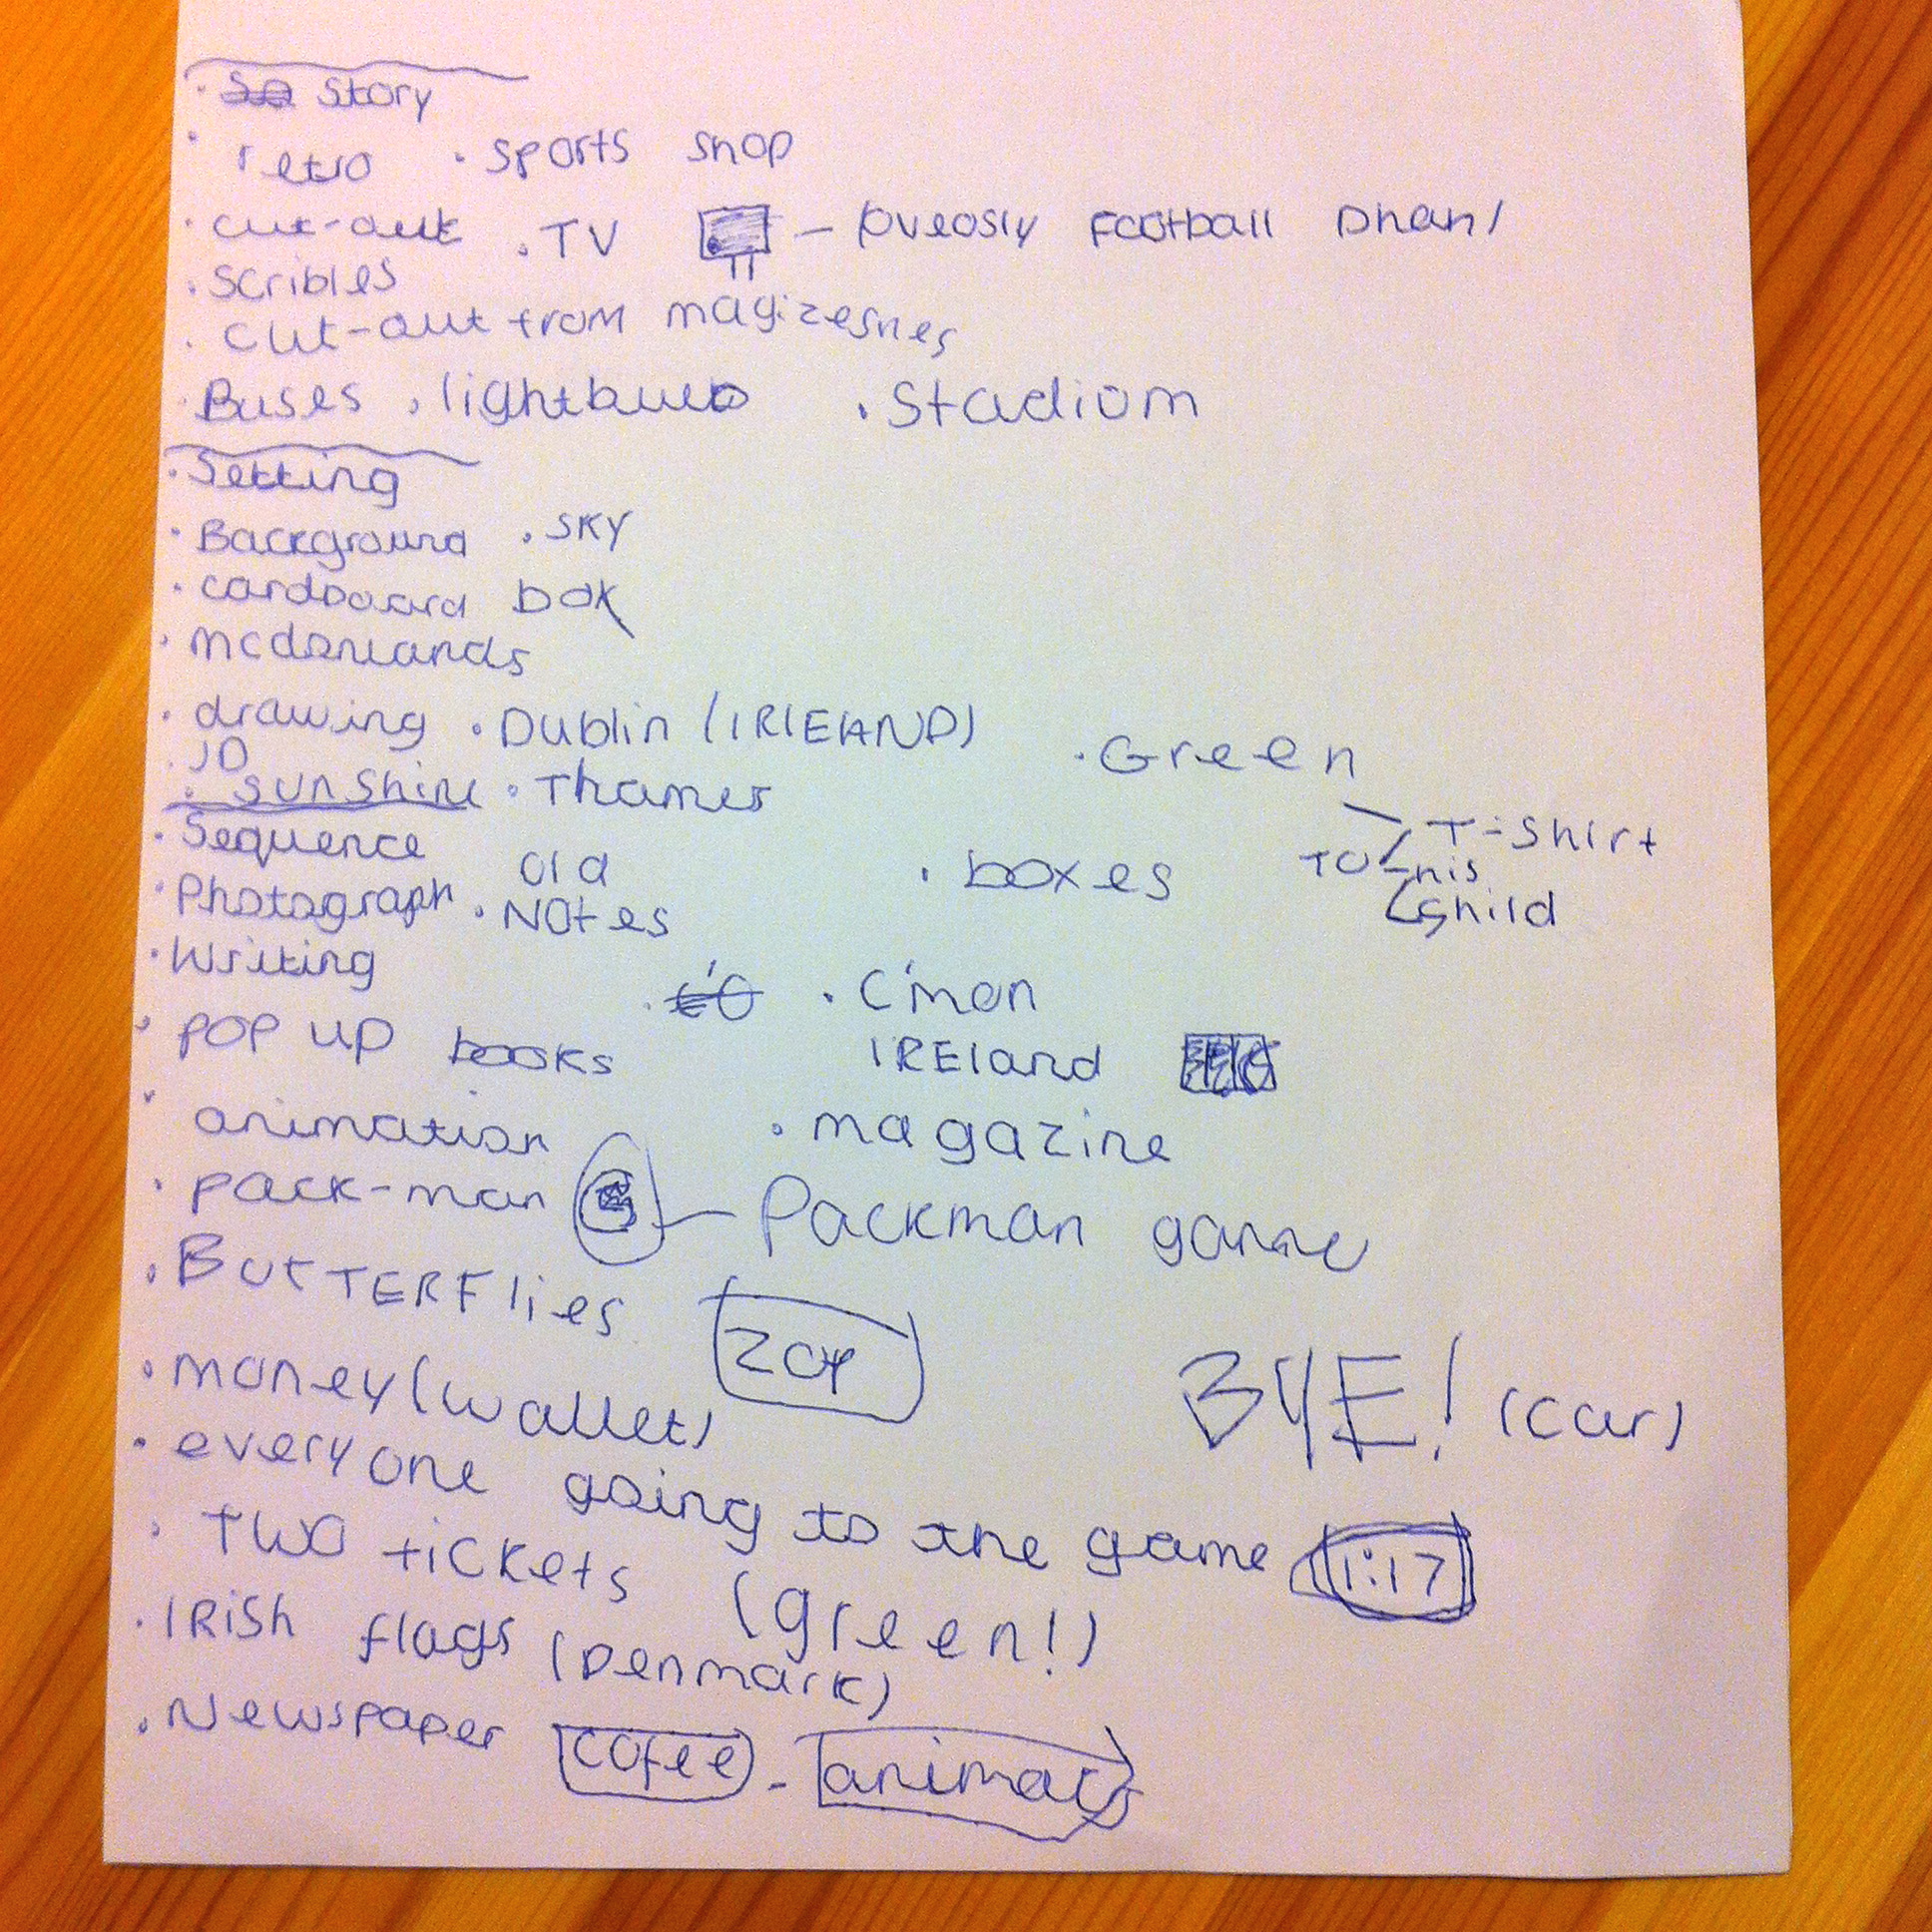 · Story
· retro · sports shop
· cut-out · TV – football
· scribles
· cut-out from magizesnes
· Buses · lightbulb · Stadium
· Setting
· Background · SKY
· cardboard box
· mcdonlands
· drawing · Dublin (IRIELAND) · Green
· sunshine · Thames
T-Shirt
· Sequence
TO his
child
· Photograph · Old Notes · boxes
· Writing
· C'mon
IREland
· POP UP books
· animation · magazine
· pack-man – Packman game
· BUTTERFlies
· money (wallet)
BYE! (car)
· everyone going to the game 1:17
· TWO tickets (green!)
· IRiSh flags (Denmark)
· Newspaper cofee -